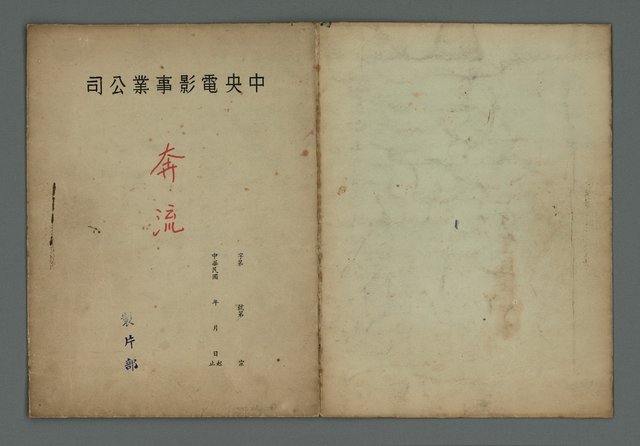 中央電影事業公司
奔流
字第 號第 宗
中華民國 年 月 日起止
製片部